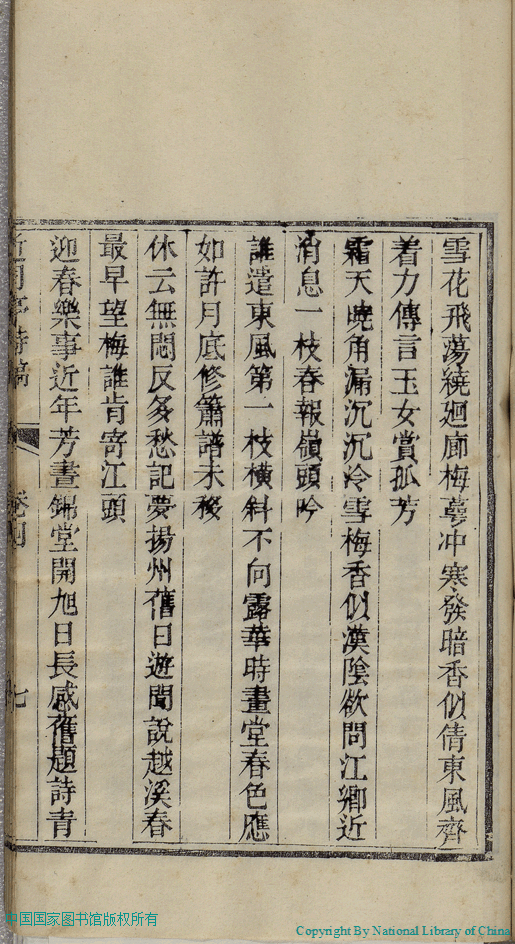 雪花飛蕩繞廻廊梅蕚冲寒發暗香似倩東風齊
着力傳言玉女賞孤芳
霜天曉角漏沉沉冷雪梅香似漢陰欲問江鄉近
消息一枝春報嶺頭吟
誰遣東風第一枝橫斜不向露華時畫堂春色應
如許月底修簫譜未移
休云無悶反多愁記夢揚州舊日遊聞說越溪春
最早望梅誰肯寄江頭
迎春樂事近年芳晝錦堂開旭日長感舊題詩青
月亭詩稿 卷四 七
中国国家图书馆版权所有
Copyright By National Library of China